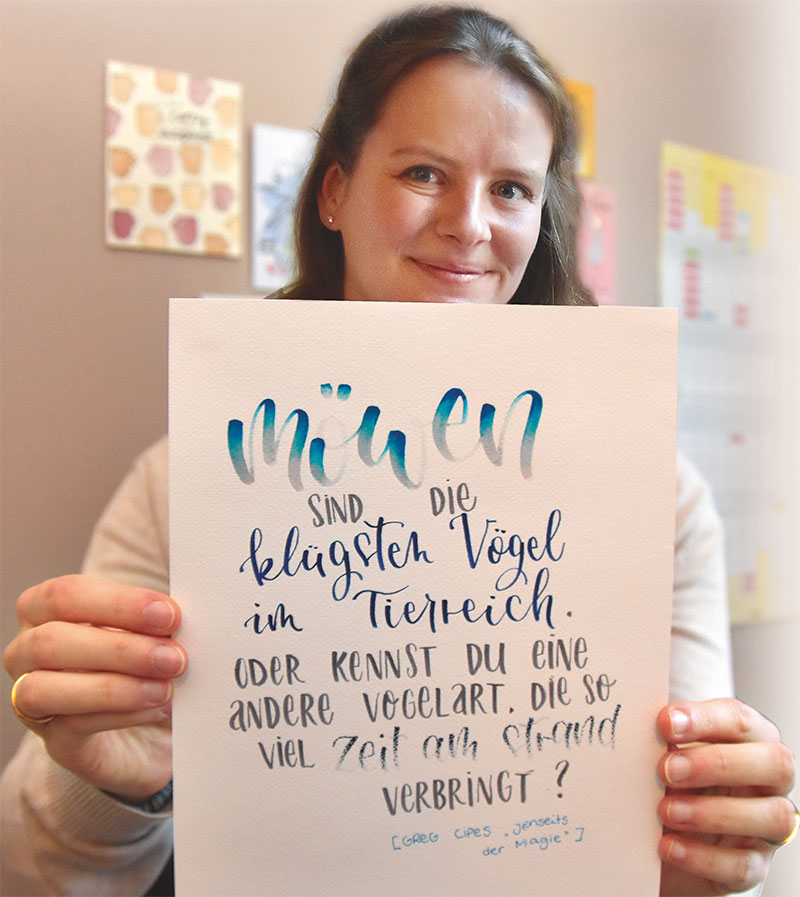 möwen
SIND DIE
klügsten Vögel
im Tierreich.
ODER KENNST DU EINE
ANDERE VOGELART, DIE SO
VIEL Zeit am Strand
VERBRINGT ?
[GREG CIPES „Jenseits
der Magie"]